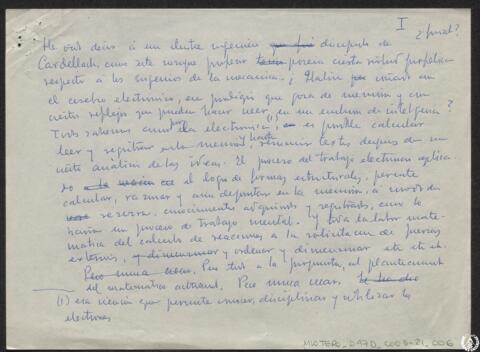 I
¿final?
He oído decir a un ilustre ingeniero que fué discípulo de
Cardellach, como este insigne profesor tenía poseía cierta visión profética
respecto a los ingenios de la mecánica. ¿Habían
el cerebro electrónico, ese prodigio que goza de memoria y con
ciertos reflejos que pueden hacer creer en un embrión de inteligencia?
Todos sabemos como por la electrónica, (1) es posible calcular
leer y registrar en la memoria, y hasta resumir textos después de un
análisis de las ideas. El proceso del trabajo electrónico aplica-
do al logro de formas estructurales, permite
calcular, razonar y aún depositar en la memoria, a modo de
reserva, conocimientos adquiridos y registrados, como lo
haría un proceso de trabajo mental. Y toda la labor mate-
mática del cálculo de reacciones a la solicitación de fuerzas
externas, y dimensionar y ordenar y dimensionar etc et et.
Pero nunca crear. Pero todo a la pregunta, al planteamiento
del matemático actuand. Pero nunca crear.
(1) esa ciencia que permite disciplinar y utilizar los
electrones
MVOTERO_D97D_C003-21_006